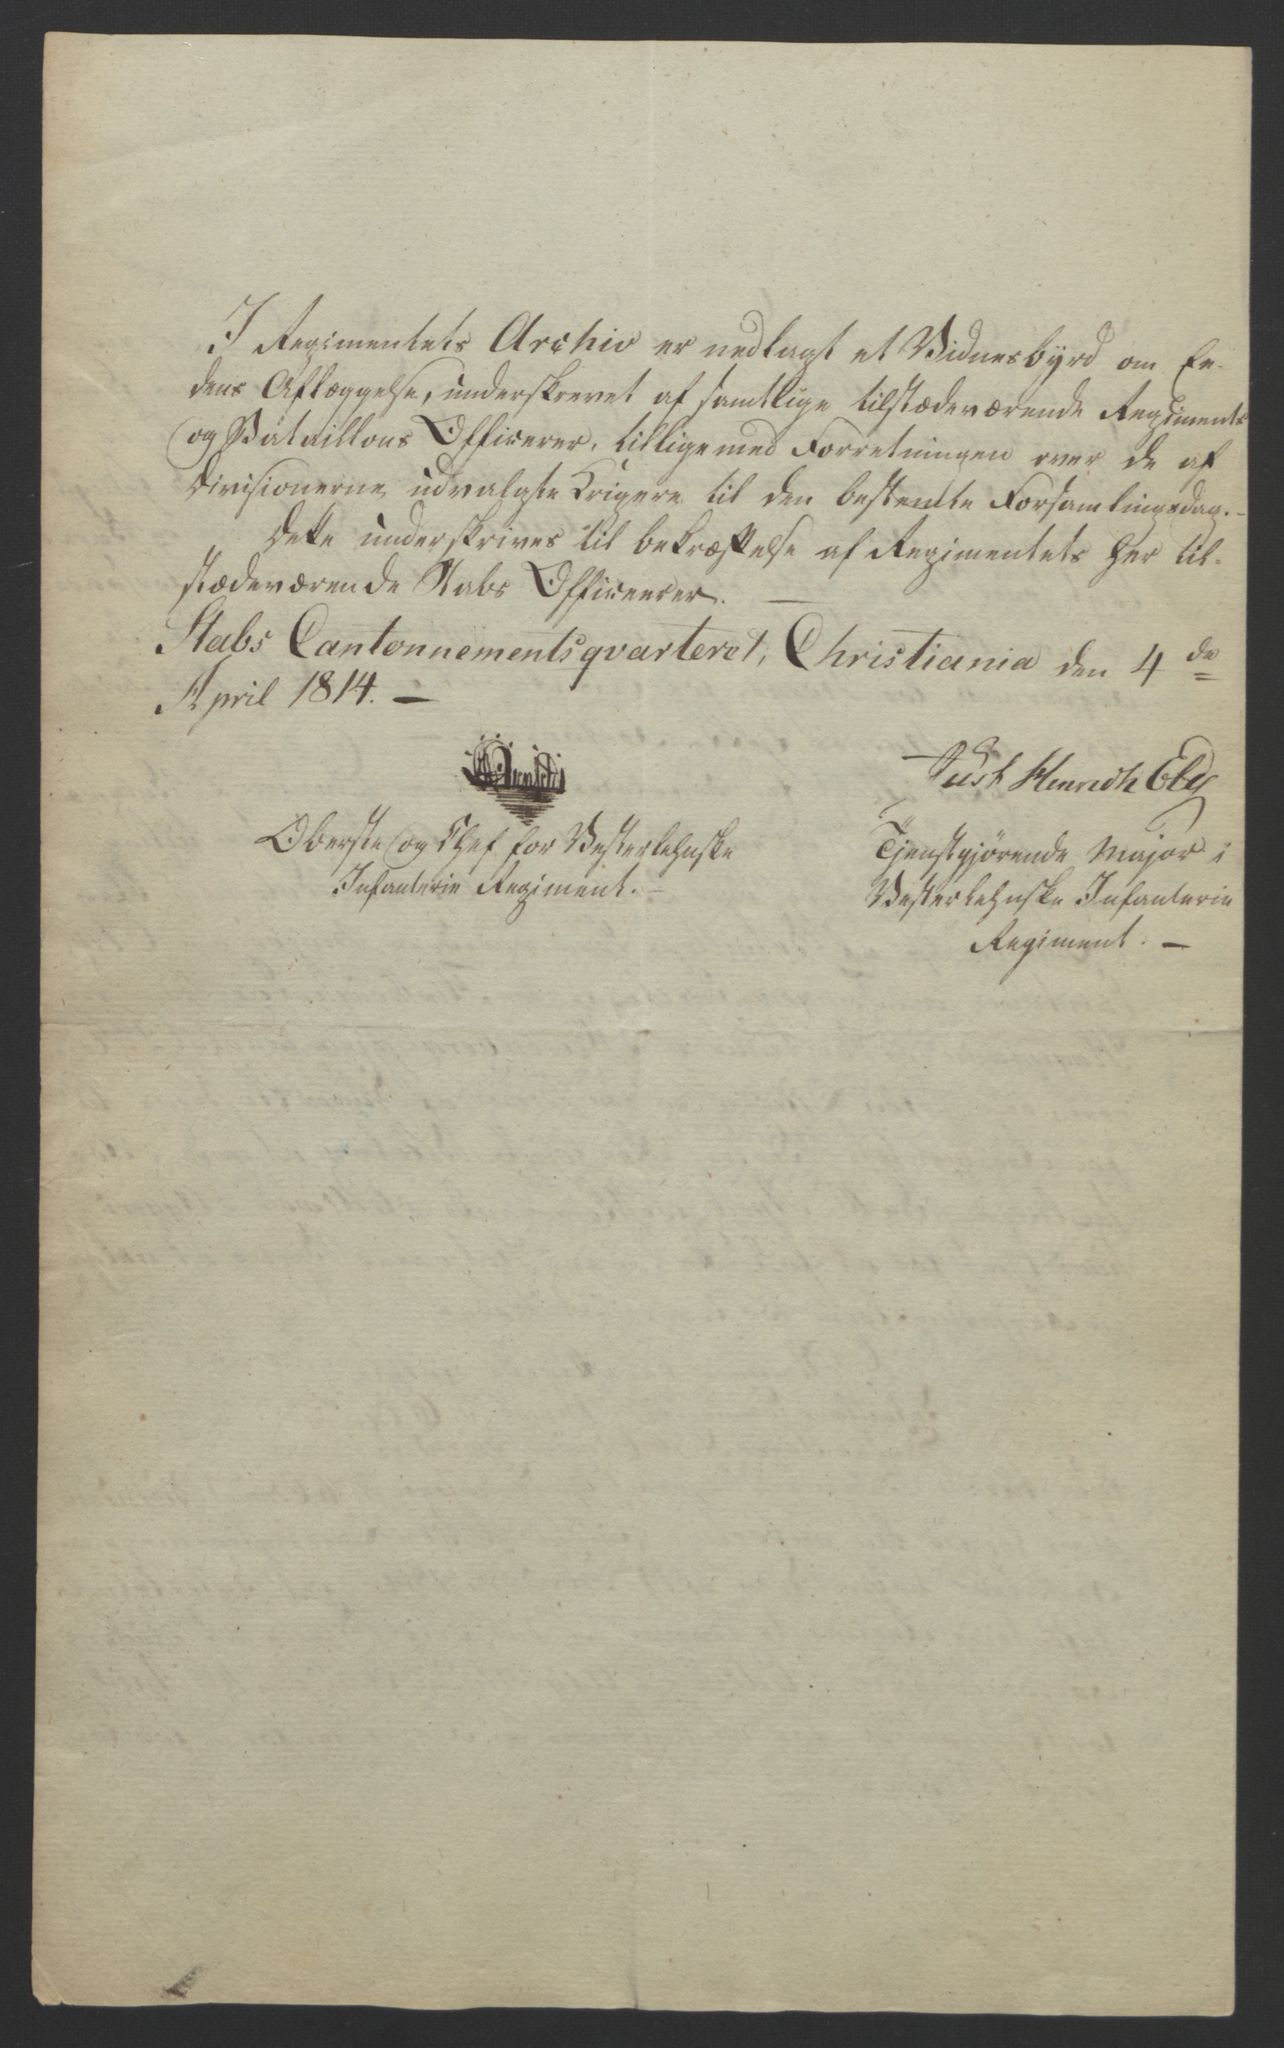 I Regimentets Archiv er nedlagt et Vidnesbyrd om Ee-
dens Aflæggelse, underskrevet af samtlige tilstædeværende Regiments
og Bataillons Officerer, tillige med Forretningen over de af
Divisionerne udvalgte Krigere til den bestemte Forsamlingsdag. -
Dette underskrives til bekræftelse af Regimentets her til-
stædeværende Stabs Officeerer. —
Stabs Cantonnementsqvarteret, Christiania den 4de
April 1814. —
Arentz
Oberste og Chef for Vesterlehnske
Infanterie Regiment. -
Just Henrich Ely
Tjenstgjørende Major i
Vesterlehnske Infanterie
Regiment. —